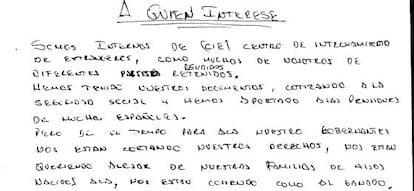 A QUIEN INTERESE
SOMOS INTERNOS DE (CIE) CENTRO DE INTERNAMIENTO
DE EXTRANJEROS, COMO MUCHOS DE NOSOTROS DE
DIFERENTES REUNIDOS RETENIDOS.
HEMOS TENIDO NUESTROS DOCUMENTOS, COTIZANDO A LA
SEGURIDAD SOCIAL Y HEMOS APORTADO A LAS PENSIONES
DE MUCHO ESPAÑOLES.
PERO DE UN TIEMPO PARA ACA NUESTRO GOBERNANTES
NOS ESTAN CORTANDO NUESTROS DERECHOS, NOS ESTAN
QUERIENDO ALEJAR DE NUESTRAS FAMILIAS DE HIJOS
NACIDOS ACA, NOS ESTAN COMO AL GANADO.